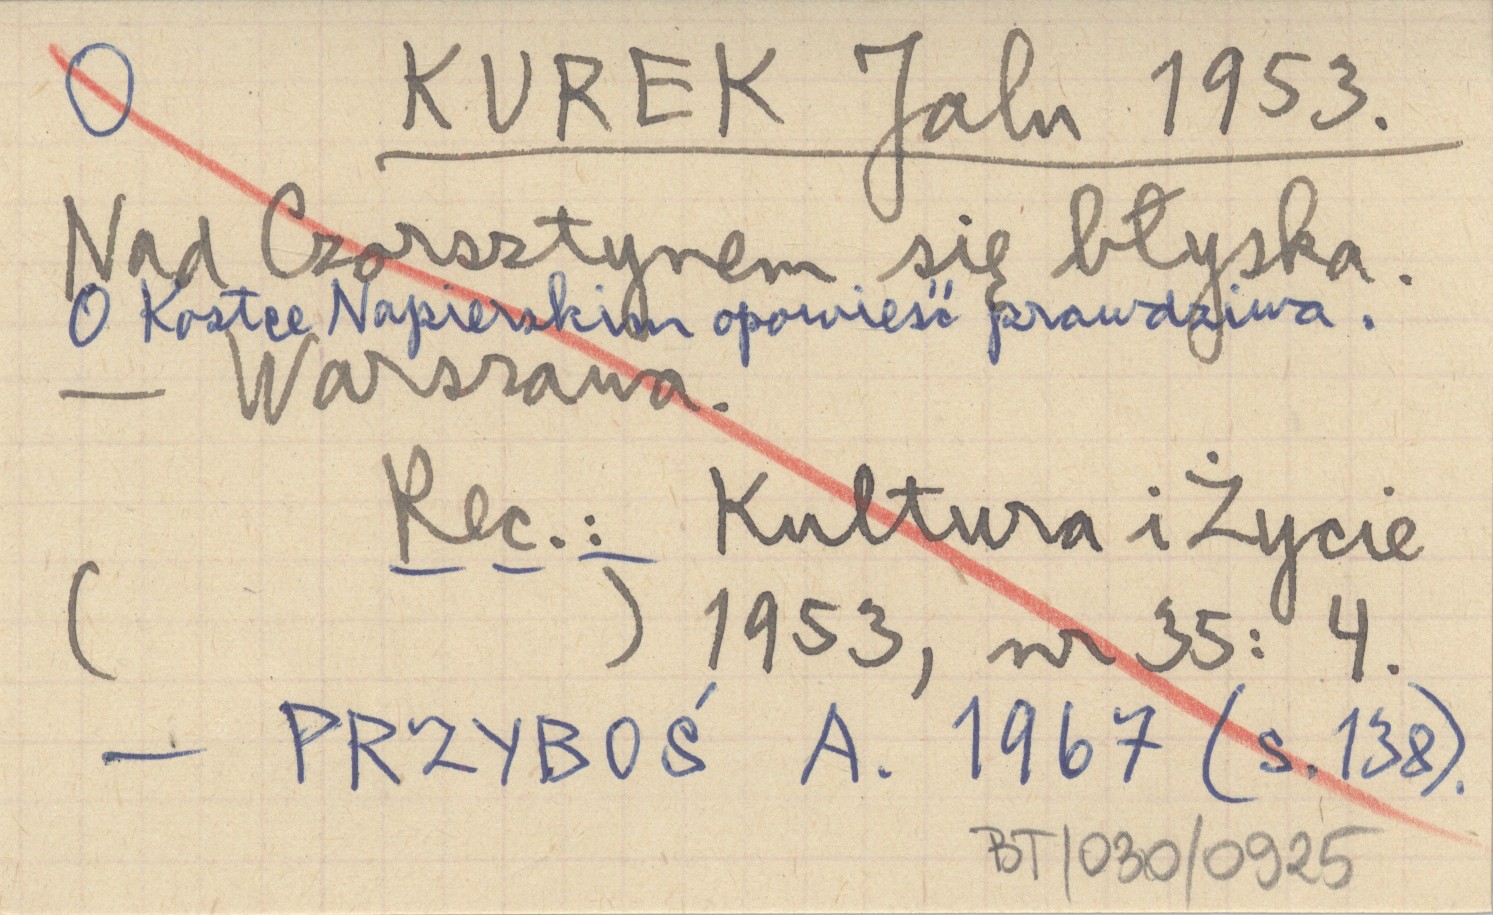 O KUREK Jalu 1953.
Nad Czorsztynem się błyska.
O Kostce Napierskim opowieść prawdziwa.
— Warszawa.
Rec.: Kultura i Życie
( ) 1953, nr 35: 4.
— PRZYBOŚ A. 1967 (s. 138).
BT/030/0925